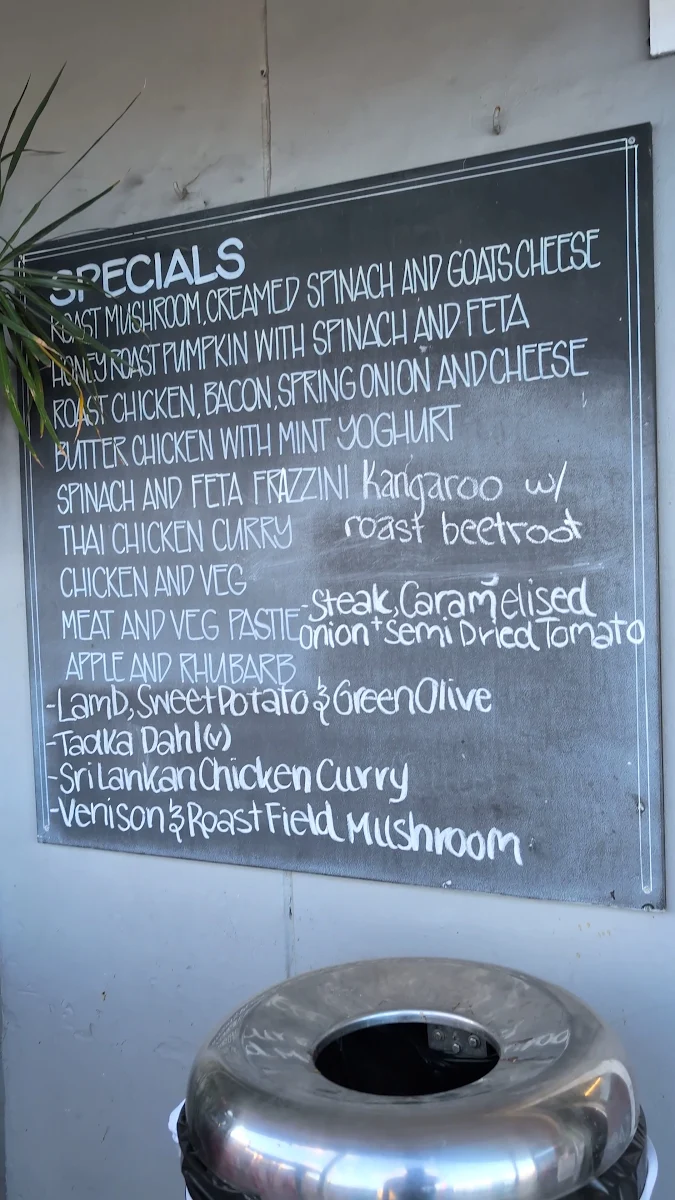 SPECIALS
ROAST MUSHROOM, CREAMED SPINACH AND GOATS CHEESE
HONEY ROAST PUMPKIN WITH SPINACH AND FETA
ROAST CHICKEN, BACON, SPRING ONION AND CHEESE
BUTTER CHICKEN WITH MINT YOGHURT
SPINACH AND FETA FRAZZINI
Kangaroo w/
roast beetroot
THAI CHICKEN CURRY
CHICKEN AND VEG
MEAT AND VEG PASTIE
-Steak, Caramelised
onion + Semi Dried Tomato
APPLE AND RHUBARB
-Lamb, Sweet Potato & Green Olive
-Tadka Dahl (v)
-Sri Lankan Chicken Curry
-Venison & Roast Field Mushroom